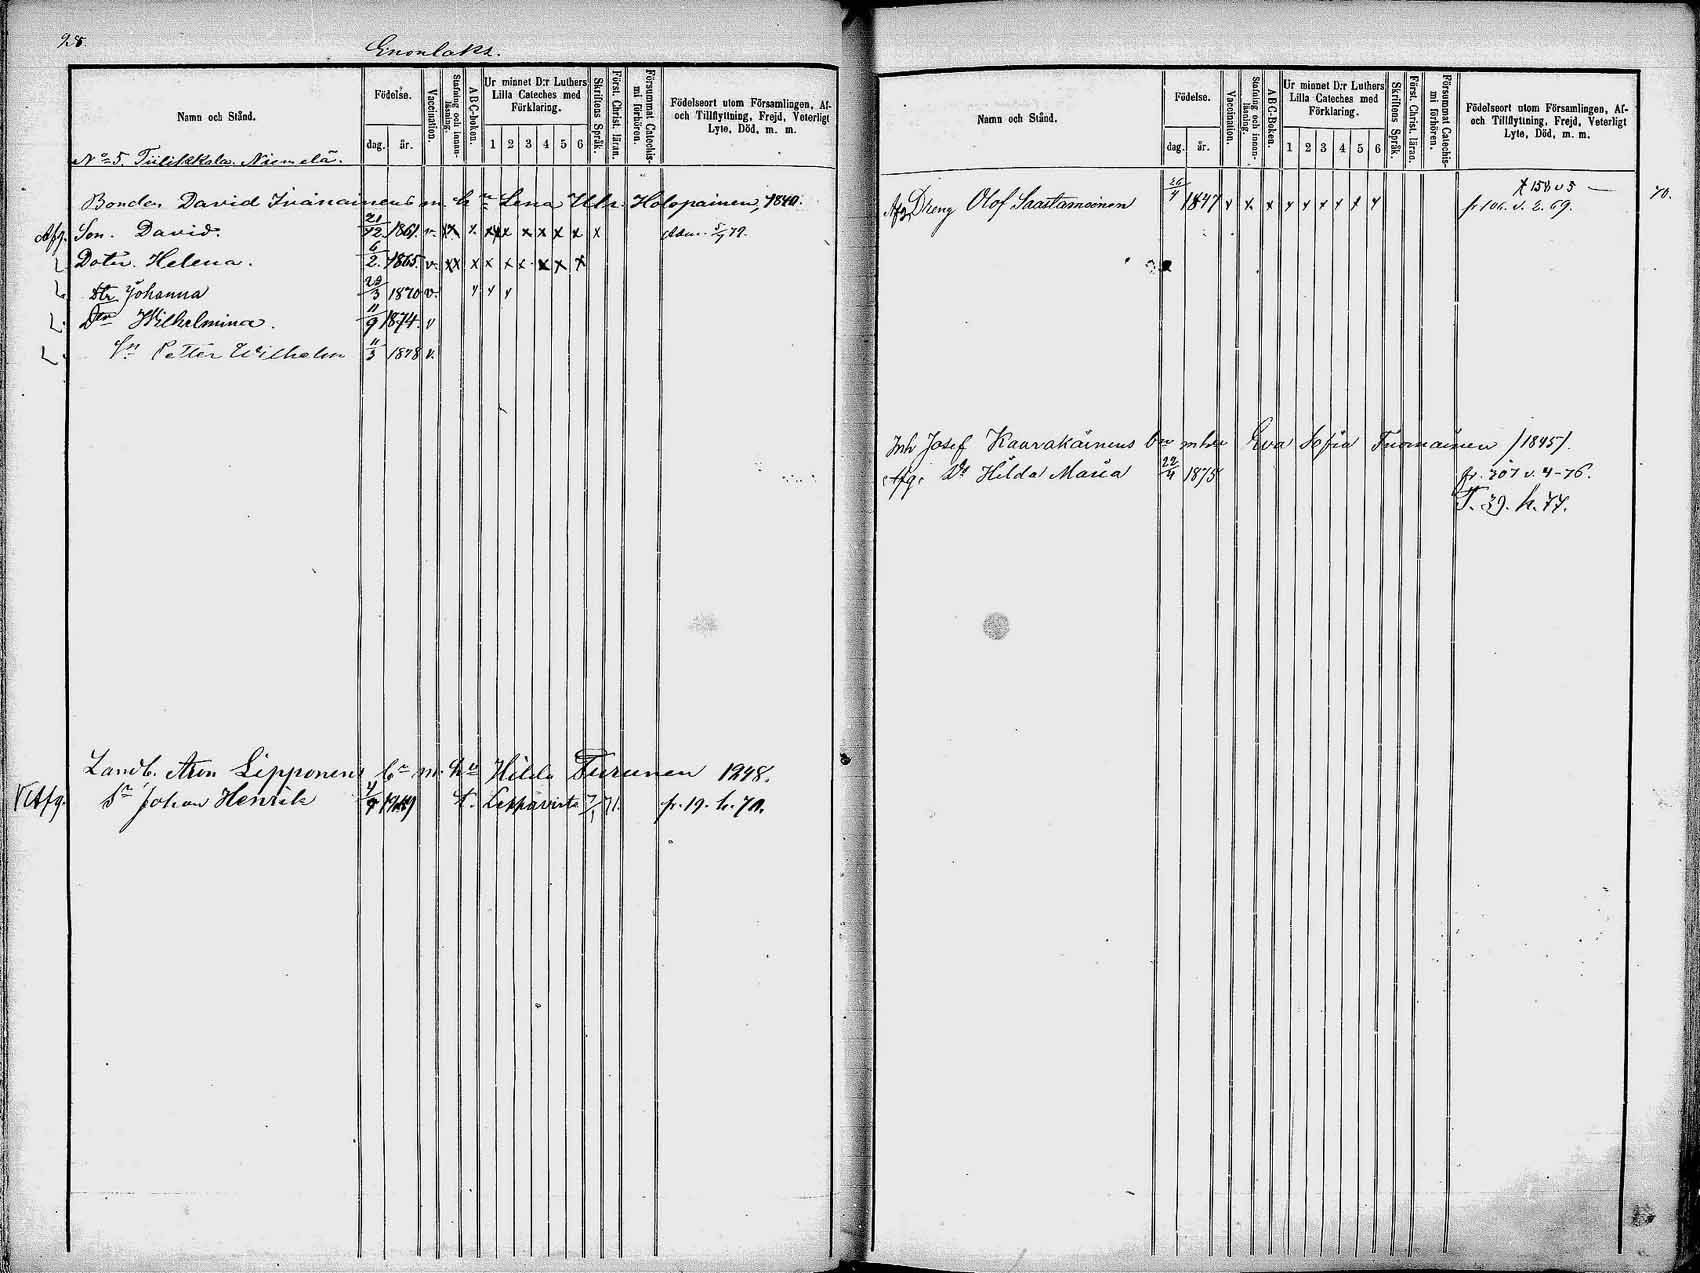 Enonlaks.
Namn och Stånd.
Födelse.
dag. år.
Vaccination.
Stafning och innan-läsning.
A B C-boken.
Ur minnet D:r Luthers Lilla Cateches med Förklaring.
1 2 3 4 5 6
Skriftens Språk.
Först. Christ. läran.
Försummat Catechis-mi förhören.
Födelseort utom Församlingen, Af- och Tillflyttning, Frejd, Veterligt Lyte, Död, m. m.
No 5. Tiilikkala. Niemelä.
Bonden David m. hu Lena Ulr. Holopainen, 1840.
Afg. Son. David. 21/12 1861. v. xx x xx x x x x x x Adm. 79.
Doter. Helena. 6/2. 1865. v. xx x x x x x x x
Dtr Johanna 22/3 1870 v.
Dtr Wilhelmina. 11/9 1874. v
Sn Petter Wilhelm 11/3 1878 v.
Landb. Aron Lipponens bn m. hu Hilda Turunen 1248.
Afg. Sn Johan Henrik t. Leppävirta 71. fr. 19. h. 70.
Namn och Stånd.
Födelse.
dag. år.
Vaccination.
Stafning och innan-läsning.
A B C-Boken.
Ur minnet D:r Luthers Lilla Cateches med Förklaring.
1 2 3 4 5 6
Skriftens Språk.
Först. Christ. läran.
Försummat Catechis-mi förhören.
Födelseort utom Församlingen, Af- och Tillflyttning, Frejd, Veterligt Lyte, Död, m. m.
70.
Afg. Dreng Olof Saastamoinen 26/4 1847 fr 106. v. 2. 69.
Inh Josef Kaarakäinens bn m hu Eva Sofia Tuomainen /1845/.
Afg. Dr Hilda Maria 22/4 1875 fr. 207 v. 4-76.
T. 39. h. 77.